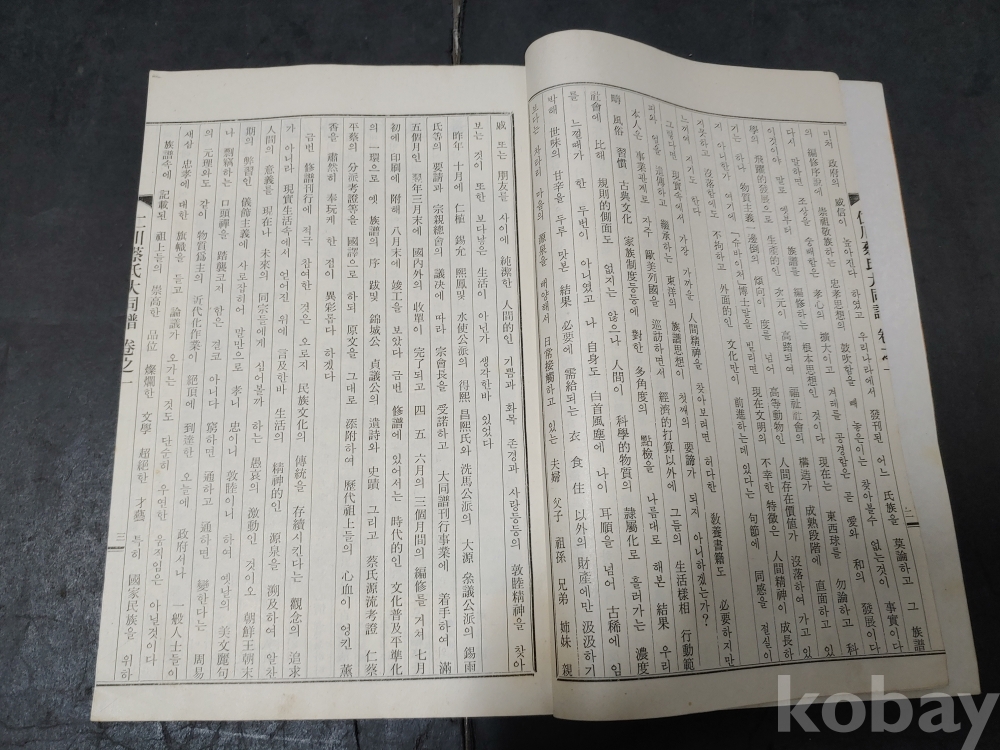 마저 政府의 威信이 높아간다 하였고 우리나라에서 發刊된 어느 氏族을 莫論하고 그 族譜
의 編修序說에 崇祖敬族하는 忠孝思想의 鼓吹함을 빼 놓은이는 찾아볼수 없는것이 事實이다
다시 말하면 조상을 숭배함은 孝心의 擴大이고 겨레를 공경함은 곧 愛와 和의 發展이다
이것이야 말로 옛부터 族譜를 編修하는 根本思想인 것이다 現在는 東西球를 勿論하고 科
學의 飛躍的發展으로 次元이 福祉社會의 構造가 成熟段階에 直面하고 있
기는 하나 物質主義一邊倒의 傾向이 度를 넘어 高等動物인 人間存在價値가 沒落하여 가고 있
아니한가 여기에 「슈바이처」博士말을 빌리면 現在文明의 不幸한 特徵은 人間精神이 成長하
沒落함에도 不拘하고 外面的인 文化만이 前進하는데 있다는 句節에 同感을 절실이
느끼게 하기도 한다
그렇다면 現實속에서 가장 가까운 人間精神을 찾아보려면 허다한 敎養書籍도 必要하지만
繼承하는 東洋의 族譜思想이 첫째의 要諦가 되지 아니하겠는가?
本人은 事業관계로 자주 歐美列國을 巡訪하면서 經濟的打算以外에 그들의 生活樣相 行動範
疇 風俗 習慣 古典文化 家族制度등등에 對한 多角度의 點檢을 나름대로 해본 結果 우리
社會에 比해 規則的側面도 없지는 않으나 人間이 科學的物質의 隷屬化로 흘러가는 濃度
를 느낄때가 한 두번이 아니였고 나 自身도 白首風塵에 나이 耳順을 넘어 古稀에 임
박해 世味의 甘辛을 두루 맛본 結果 必要에 需給되는 衣 食 住 以外의 財産에만 汲汲하기
보다는 차라리 마음의 源泉을 해양해서 日常接觸하고 있는 夫婦 父子 祖孫 兄弟 姉妹 親
戚 또는 朋友를 사이에 純潔한 人間的인 기쁨과 화목 존경과 사랑등등의 敦睦精神을 찾아
보는 것이 또한 보다낳은 生活이 아닌가 생각한바 있었다
昨年 十月에 仁植 錫允 熙鳳및 水使公派의 得熙 昌熙氏와 洗馬公派의 大源 參議公派의 錫雨
氏等의 要請과 宗親總會의 議決에 따라 宗會長을 受諾하고 大同譜刊行事業에 着手하여 滿
五個月인 翌年三月末에 國內外의 收單이 完了되고 四 五 六月의 三個月間의 編修를 거쳐 七月
初에 印刷에 附해 八月末에 竣工을 보았다 금번 修譜에 있어서는 時代的인 文化普及平準化
의 一環으로 옛 族譜의 序 跋및 錦城公 貞議公의 遺詩와 史蹟 그리고 蔡氏源流考證 仁蔡
平蔡의 分派考證等을 國譯으로 하되 原文을 그대로 添附하여 歷代祖上들의 心血이 엉킨 薰
香을 肅然히 奉玩케 한 점이 異彩롭다 하겠다
금번 修譜刊行에 적극 참여한 것은 오로지 民族文化의 傳統을 存續시킨다는 觀念의 追求
가 아니라 現實生活속에서 얻어진 위에 言及한바 生活의 精神的인 源泉을 溯及하여 알찬
人間의 意義를 現在나 未來의 同宗들에게 심어볼까 하는 愚哀의 激動인 것이오 朝鮮王朝末
期의 弊習인 儀飾主義에 사로잡히어 말만으로 孝니 忠이니 敦睦이니 하여 옛날의 美文麗句
나 口頭禪을 踏襲코저 함은 결코 아니다 窮하면 通하고 通하면 變한다는 周易
의 元理와도 같이 物質爲主의 近代化作業이 絕頂에 到達한 오늘에 政府에서나 一般人士들이
새삼 忠孝에 대한 旗幟를 들고 論議가 오가는 것도 단순히 우연한 움직임은 아닐것이다
族譜속에 記載된 祖上들의 崇高한 品位 燦爛한 文學 超絕한 才藝 특히 國家民族을 위하
仁川蔡氏大同譜 卷之一
三
kobay